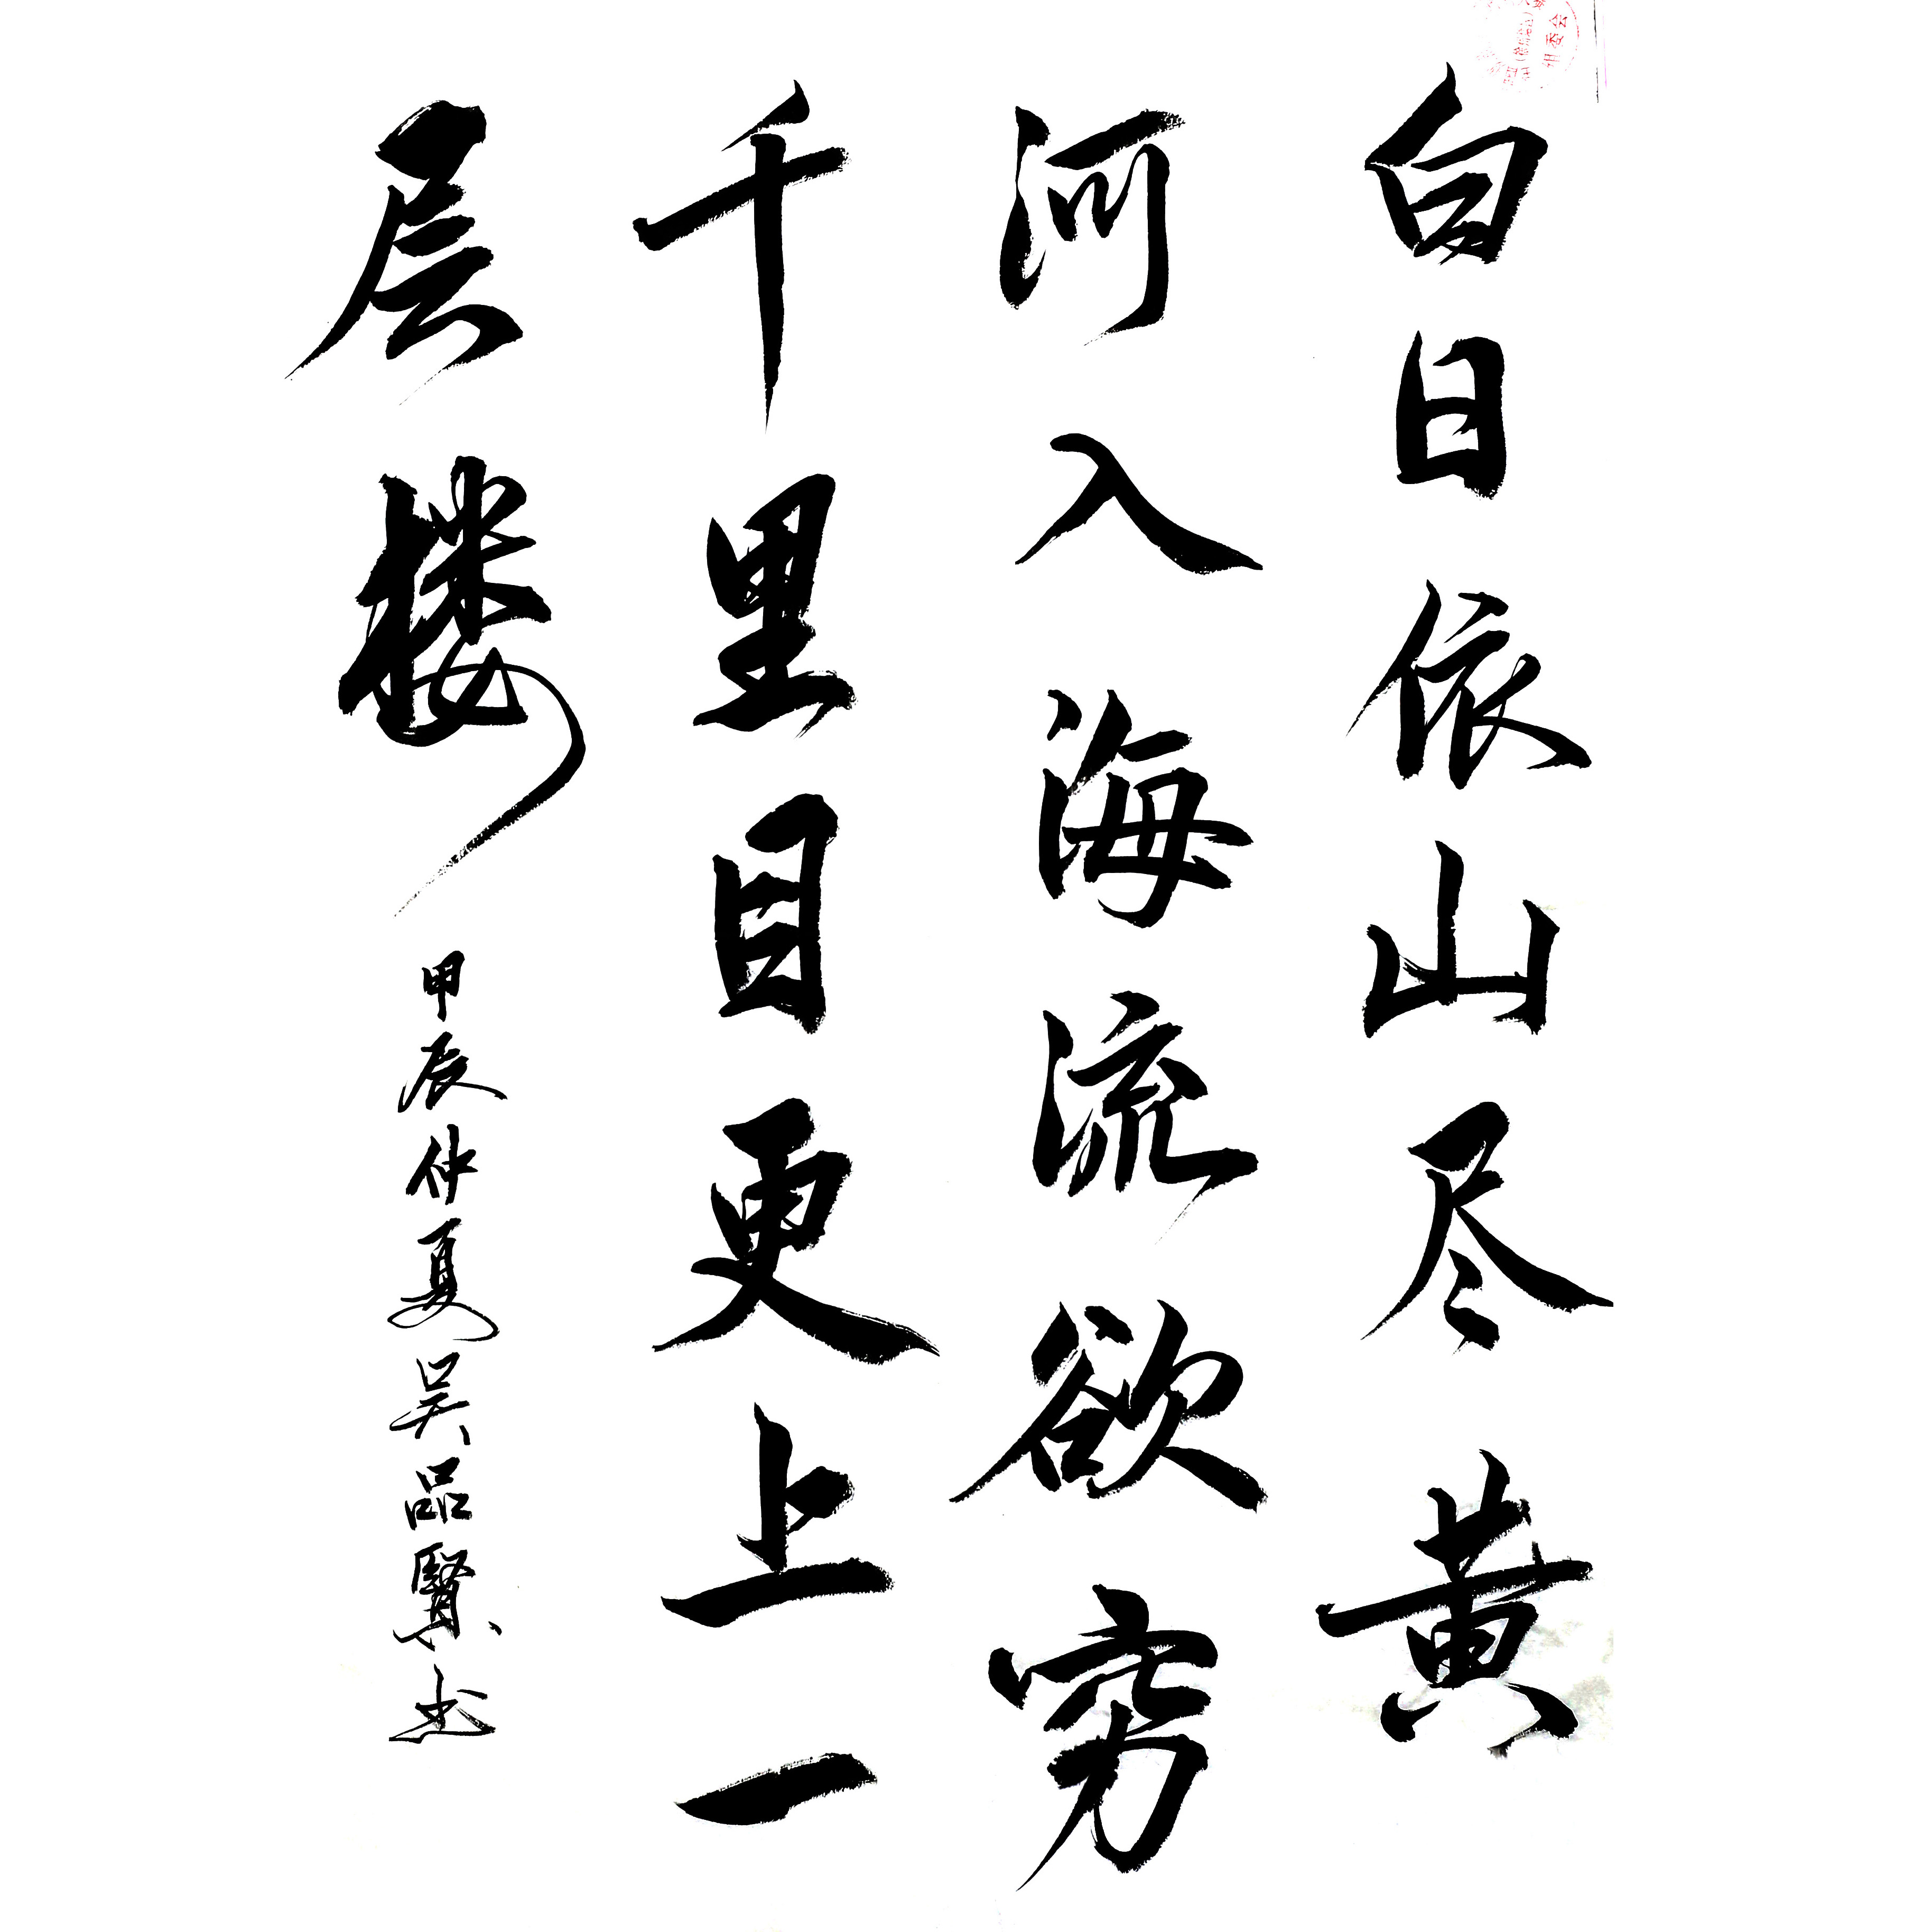 白日依山尽黄
河入海流欲穷
千里目更上一
层楼
甲辰仲夏吴品贤书